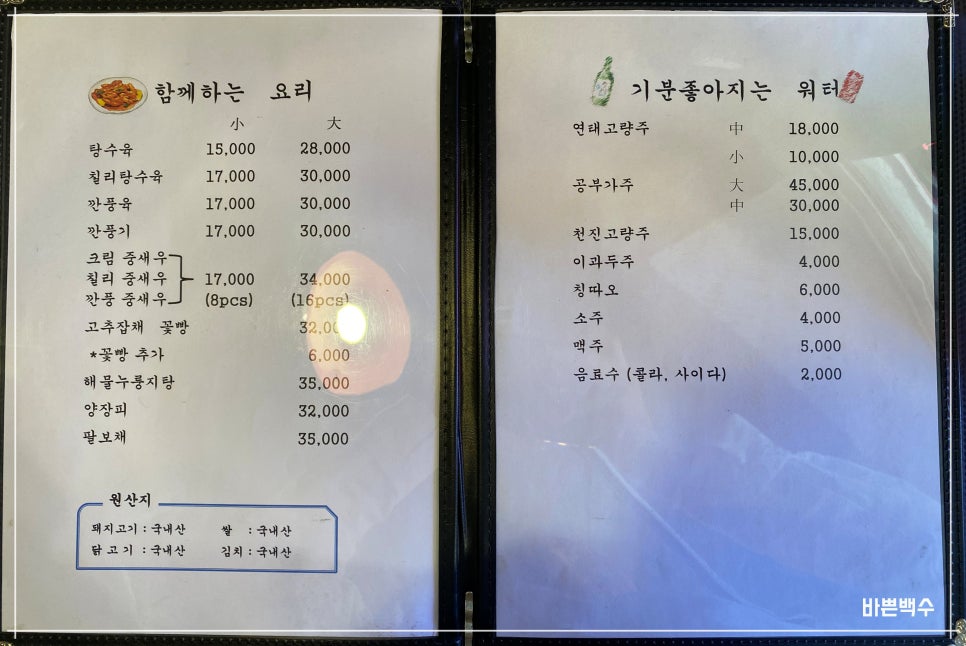 함께하는 요리
小 大
탕수육 15,000 28,000
칠리탕수육 17,000 30,000
깐풍육 17,000 30,000
깐풍기 17,000 30,000
크림 중새우
칠리 중새우 17,000 34,000
깐풍 중새우 (8pcs) (16pcs)
고추잡채 꽃빵 32,000
*꽃빵 추가 6,000
해물누룽지탕 35,000
양장피 32,000
팔보채 35,000
원산지
돼지고기 : 국내산 쌀 : 국내산
닭고기 : 국내산 김치 : 국내산
기분좋아지는 워터
연태고량주 中 18,000
小 10,000
공부가주 大 45,000
中 30,000
천진고량주 15,000
이과두주 4,000
칭따오 6,000
소주 4,000
맥주 5,000
음료수 (콜라, 사이다) 2,000
바쁜백수